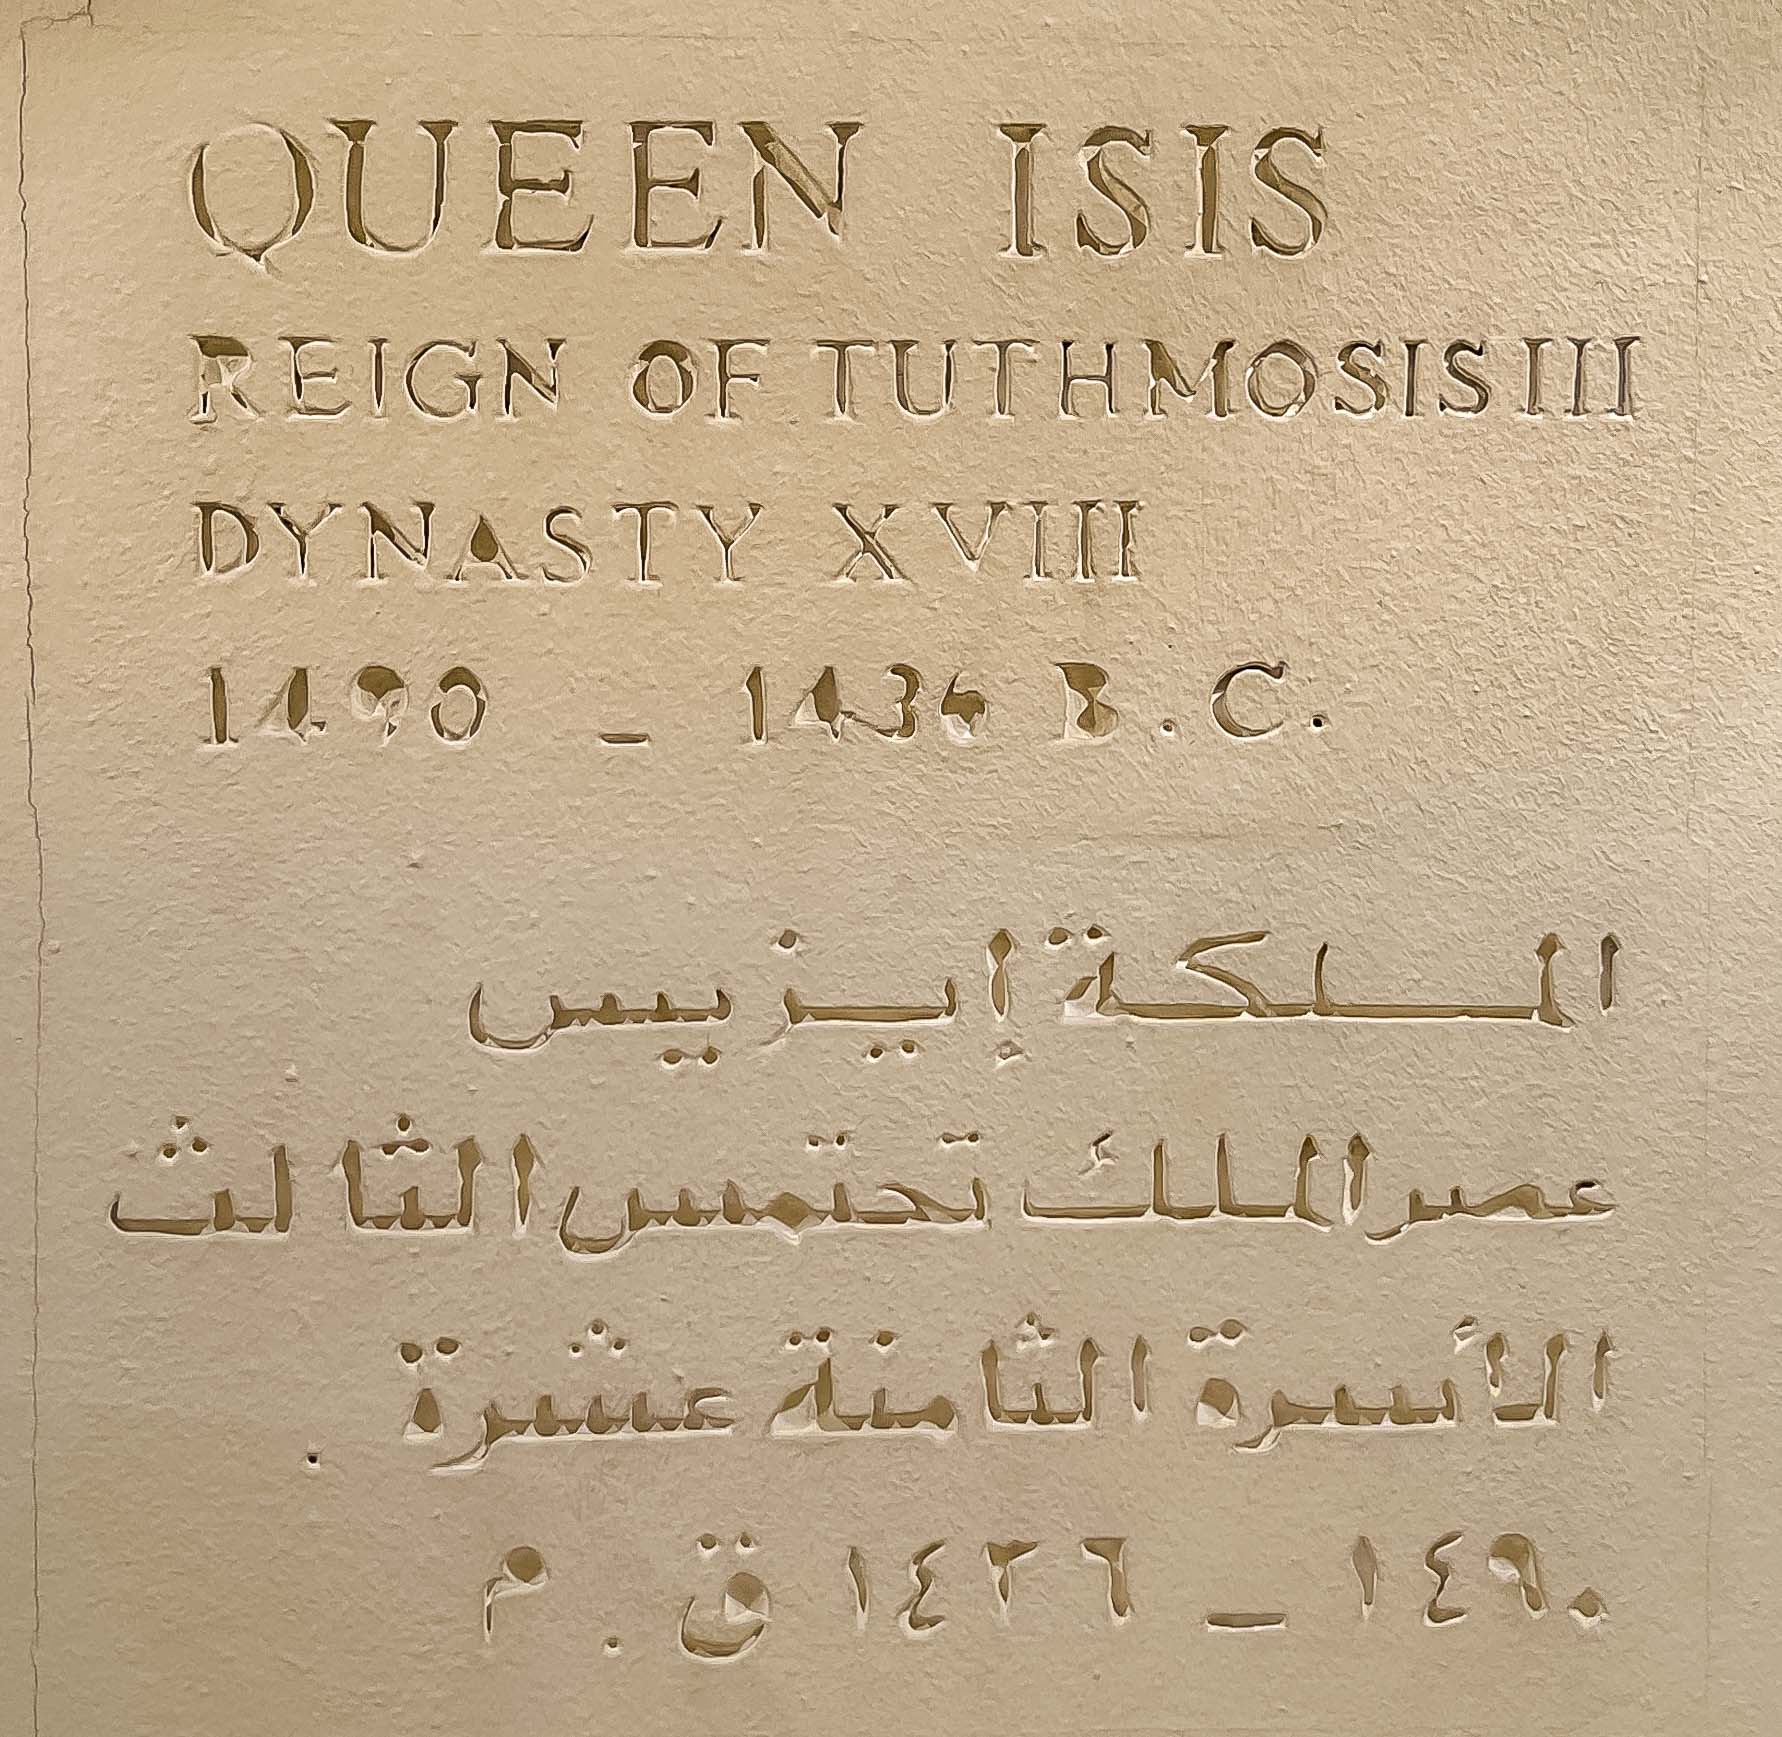 QUEEN ISIS
REIGN OF TUTHMOSIS III
DYNASTY XVIII
1490 _ 1436 B.C.
الملكة إيزييس
عصر الملك تحتمس الثالث
الأسرة الثامنة عشرة .
١٤٩٠ _ ١٤٣٦ ق . م